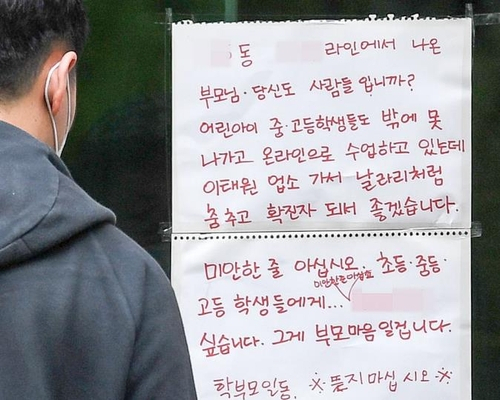 동 라인에서 나온
부모님· 당신도 사람들 입니까?
어린아이 중·고등학생들도 밖에 못
나가고 온라인으로 수업하고 있는데
이태원 업소 가서 날라리처럼
춤 추고 확진자 되서 좋겠습니다.
미안한 줄 아십시오. 초등·중등·
고등 학생들에게...
싶습니다. 그게 부모마음일겁니다.
학부모일동. ※ 뜯지마십시오 ※